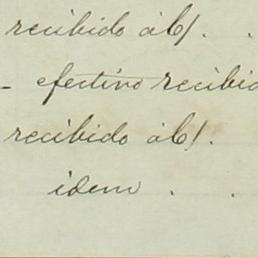 recibido á b/. .
- efectivo recibid
recibido á b/.
idem . .